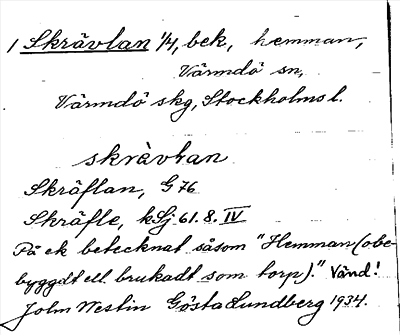 1 Skrävlan 1/4, bek, hemman,
Värmdö sn,
Värmdö skg, Stockholms l.
skràvlan
Skräflan, G 76
Skräfle, kSj 61.8. IV
På ek betecknat såsom "Hemman (obe-
byggdt ell. brukadt som torp)." Vänd!
John Westin Gösta Lundberg 1934.